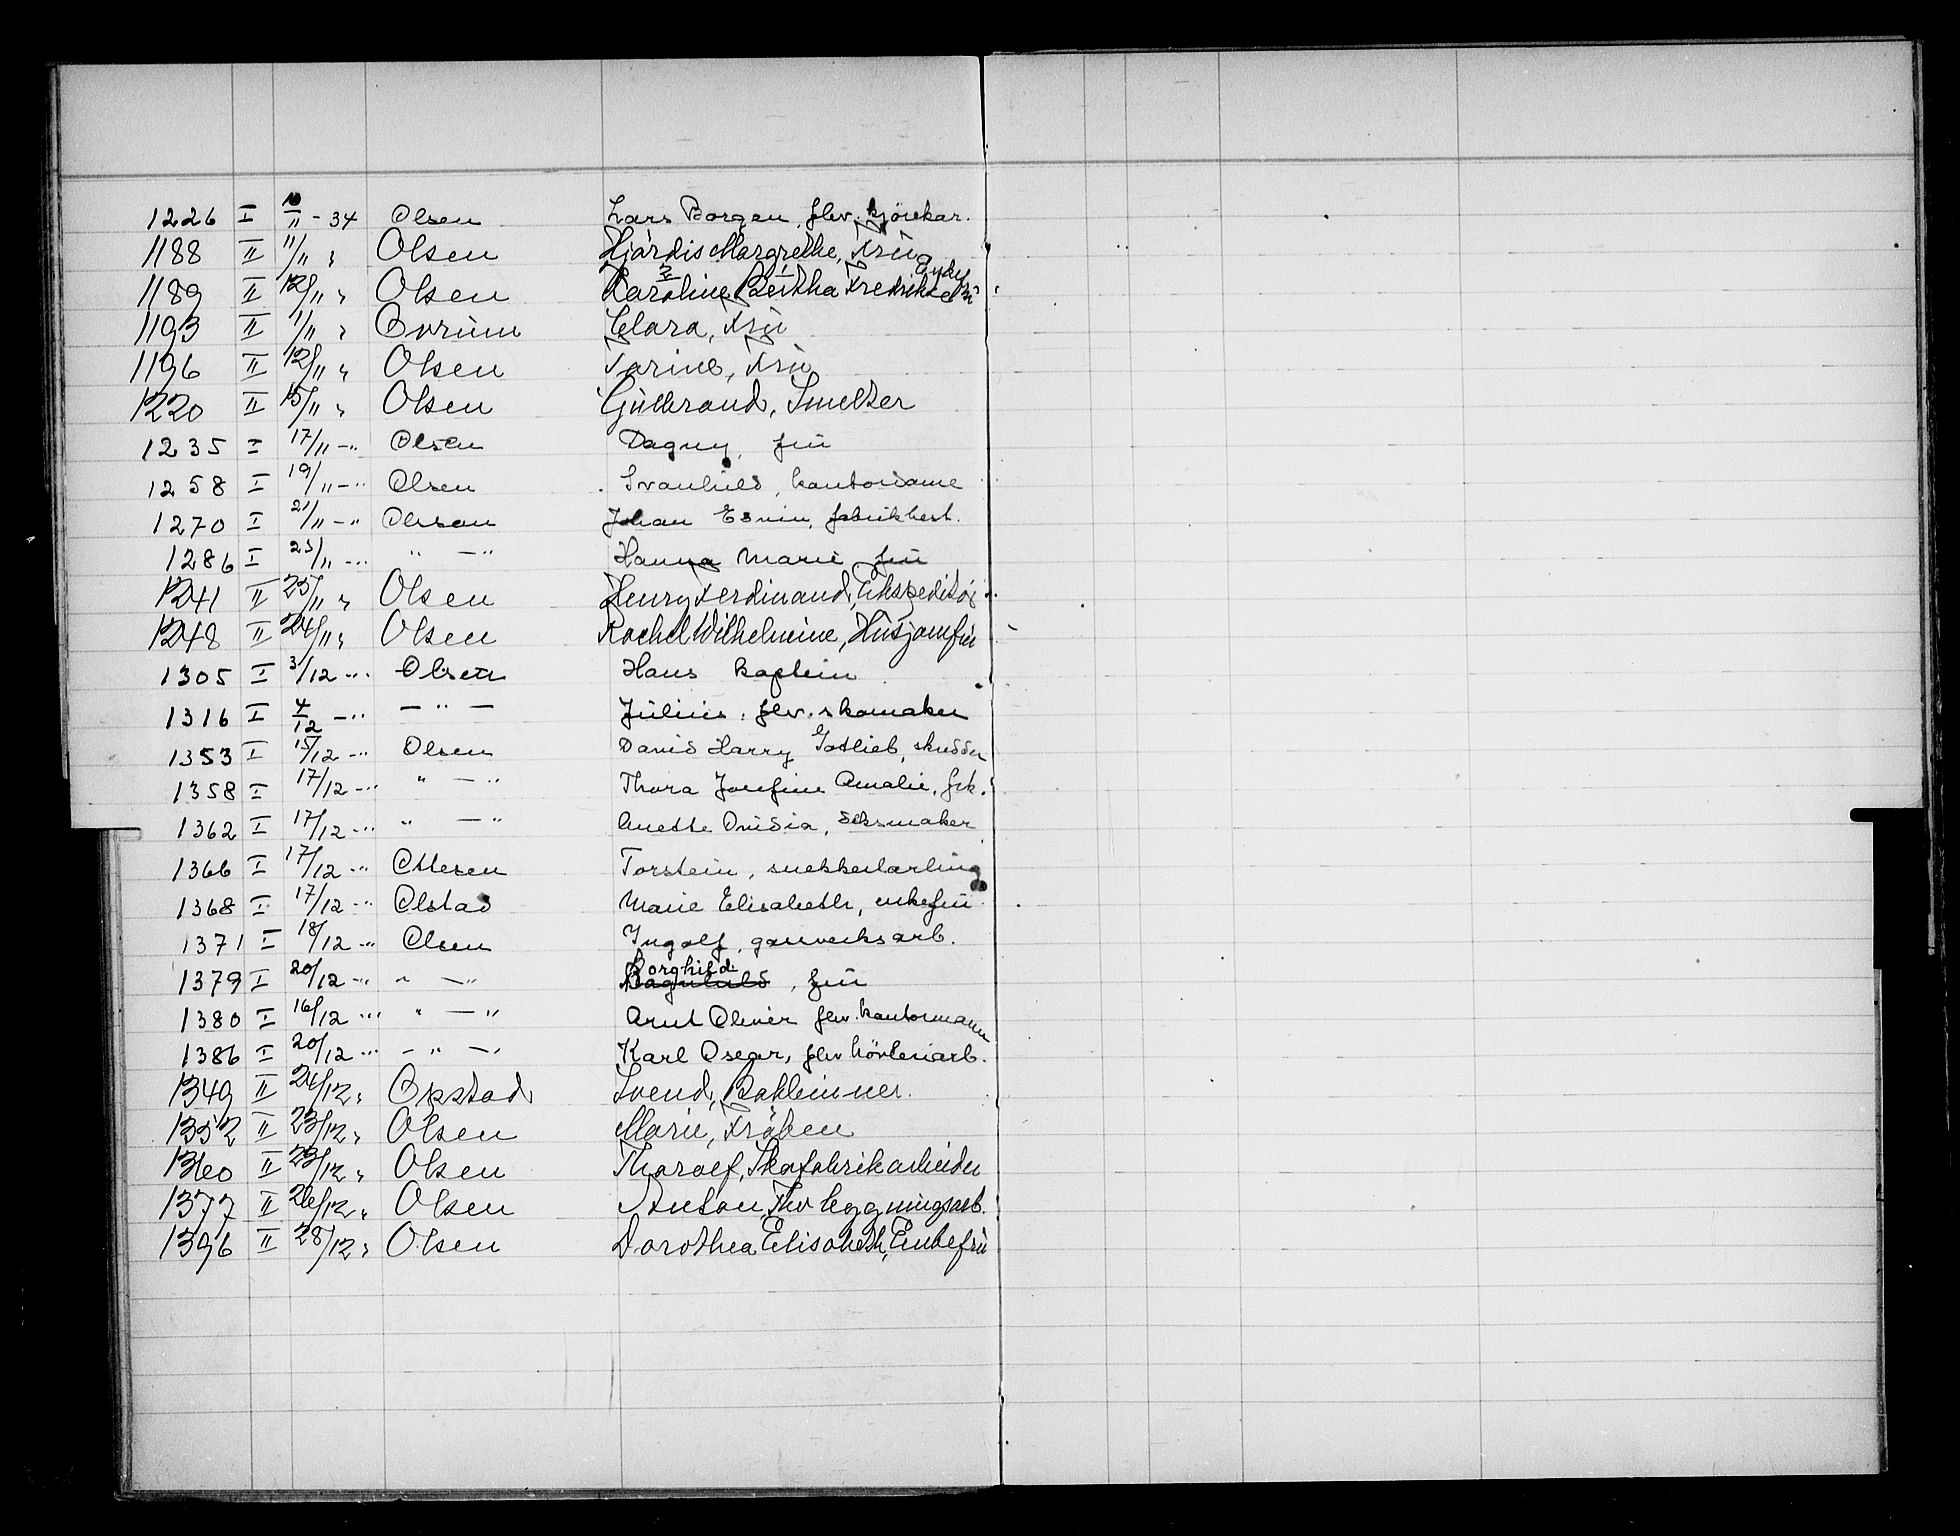 1226 I 10/11 - 34 Olsen Lars Borgen, flv. kjörekar.
1188 II 11/11 " Olsen Hjärdis Margrethe, Frü
1189 II 12/11 " Olsen Karoline Bertha Fredrikke
1193 II 1/11 " Clara, Frü
1196 II 12/11 " Olsen Karine, Frü
1220 II 15/11 " Olsen Gülbrand, Smelter
1235 I 17/11 - " Olsen Dagny, frü
1258 I 19/11 - " Olsen Svanhild, kontordame
1270 I 21/11 - " Olsson Johan Edvin, fabrikbest.
1286 I 23/11 - " " — " Hanna Marie frü
1241 II 25/11 " Olsen Henry Ferdinand, Ekspeditör
1248 II 24/11 " Olsen Rachel Wilhelmine, Hüsjomfrü
1305 I 3/12 - " Olsen Hans kaptein
1316 I 4/12 - " — " — Julius, flv. skomaker
1353 I 15/12 - " Olsen David Harry Gotlieb, skredder
1358 I 17/12 - " " — " Thora Josefine Amalie, frk.
1362 I 17/12 - " " — " Anette Ovidia,
1366 I 17/12 - " Ottesen Torstein, snekkerlærling
1368 I 17/12 - " Olstad Marie Elisabeth, enkefrü
1371 I 18/12 - " Olsen Ingolf, gassverksarb.
1379 I 20/12 - " " — " Borghild Dagnhild, frü
1380 I 16/12 - " " — " Arnt Oliver flv. kontormann
1386 I 20/12 - " — " — " Karl Oscar, flv. hövleriarb.
1349 II 24/12 " Opstad Svend,
1352 II 23/12 " Olsen Marie, Fröken
1360 II 23/12 " Olsen Tharolf, Skofabrikarbeider
1377 II 26/12 " Olsen Anton, Fhv leggningsarb.
1396 II 28/12 " Olsen Dorothea Elisabeth, Enkefrü